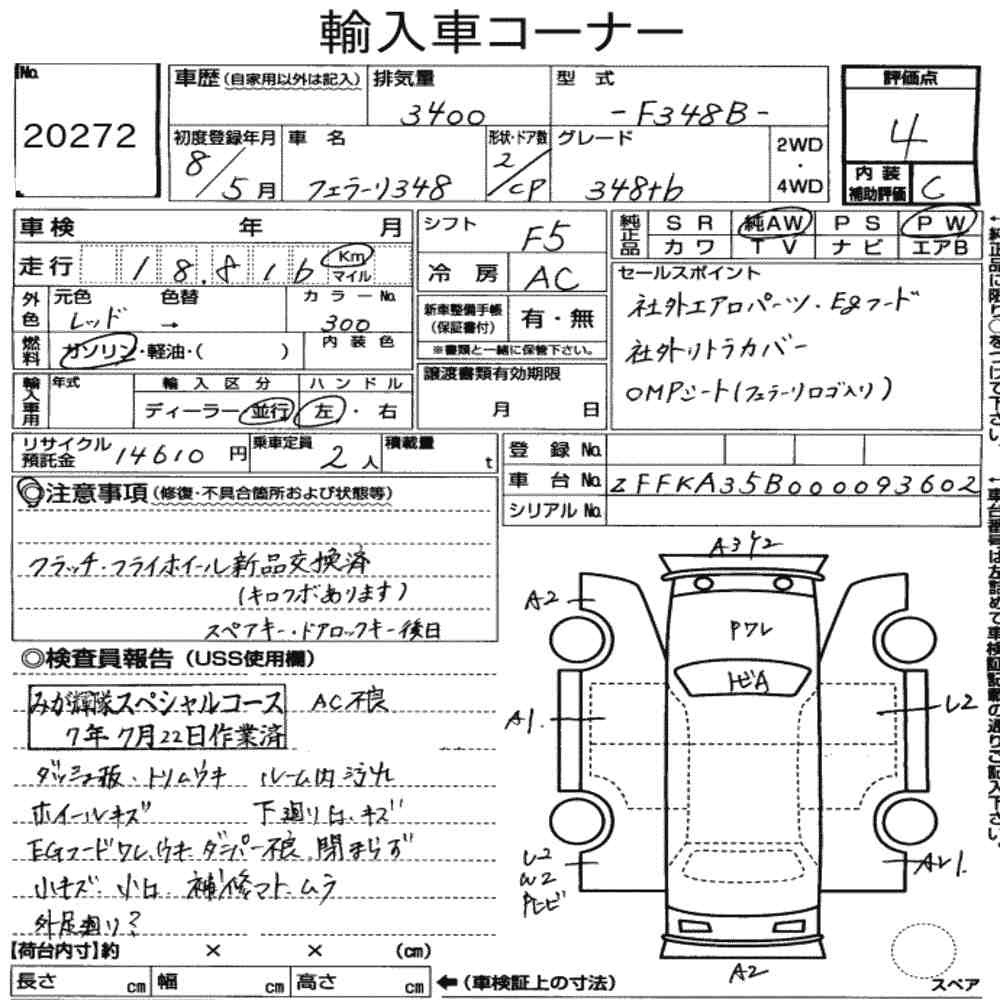 輸入車コーナー
No.
20272
車歴(自家用以外は記入)
排気量
3400
型式
-F348B-
評価点
4
初度登録年月
8/5月
車名
フェラーリ348
形状・ドア数
2/CP
グレード
348tb
2WD
・
4WD
内装
補助評価
C
車検 年 月
シフト
F5
純正品
SR 純AW PS PW
カワ TV ナビ エアB
走行
18.816
Km
マイル
冷房
AC
セールスポイント
社外エアロパーツ・Egフード
社外リトラカバー
OMPシート(フェラーリロゴ入り)
外色
元色 色替
レッド →
カラーNo.
300
新車整備手帳
(保証書付)
有・無
※書類と一緒に保管下さい。
燃料
ガソリン・軽油・( )
内装色
輸入車用
年式
輸入区分
ディーラー・並行
ハンドル
左・右
譲渡書類有効期限
月 日
リサイクル
預託金
14610円
乗車定員
2人
積載量
t
登録No.
車台No. ZFFKA35B000093602
シリアルNo.
◎注意事項(修復・不具合箇所および状態等)
クラッチ・フライホイール新品交換済
(キロフボあります)
スペアキー・ドアロックキー後日
◎検査員報告(USS使用欄)
みが輝隊スペシャルコース
7年7月22日作業済
AC不良
ダッシュ板・トリムウキ ルーム内汚れ
ホイールキズ 下廻りサビ、キズ
EGフードワレ、ウキ ダンパー不良、閉まらず
小キズ、小凹 補修マト、ムラ
外足廻り?
A3Y2
A2
Pワレ
トビA
A1
U2
U2
W2
A2
スペア
【荷台内寸】約 × × (cm)
長さ cm 幅 cm 高さ cm
←(車検証上の寸法)
←純正品に限り○をつけて下さい。
←車台番号は左詰めで車検証記載の通りご記入下さい。